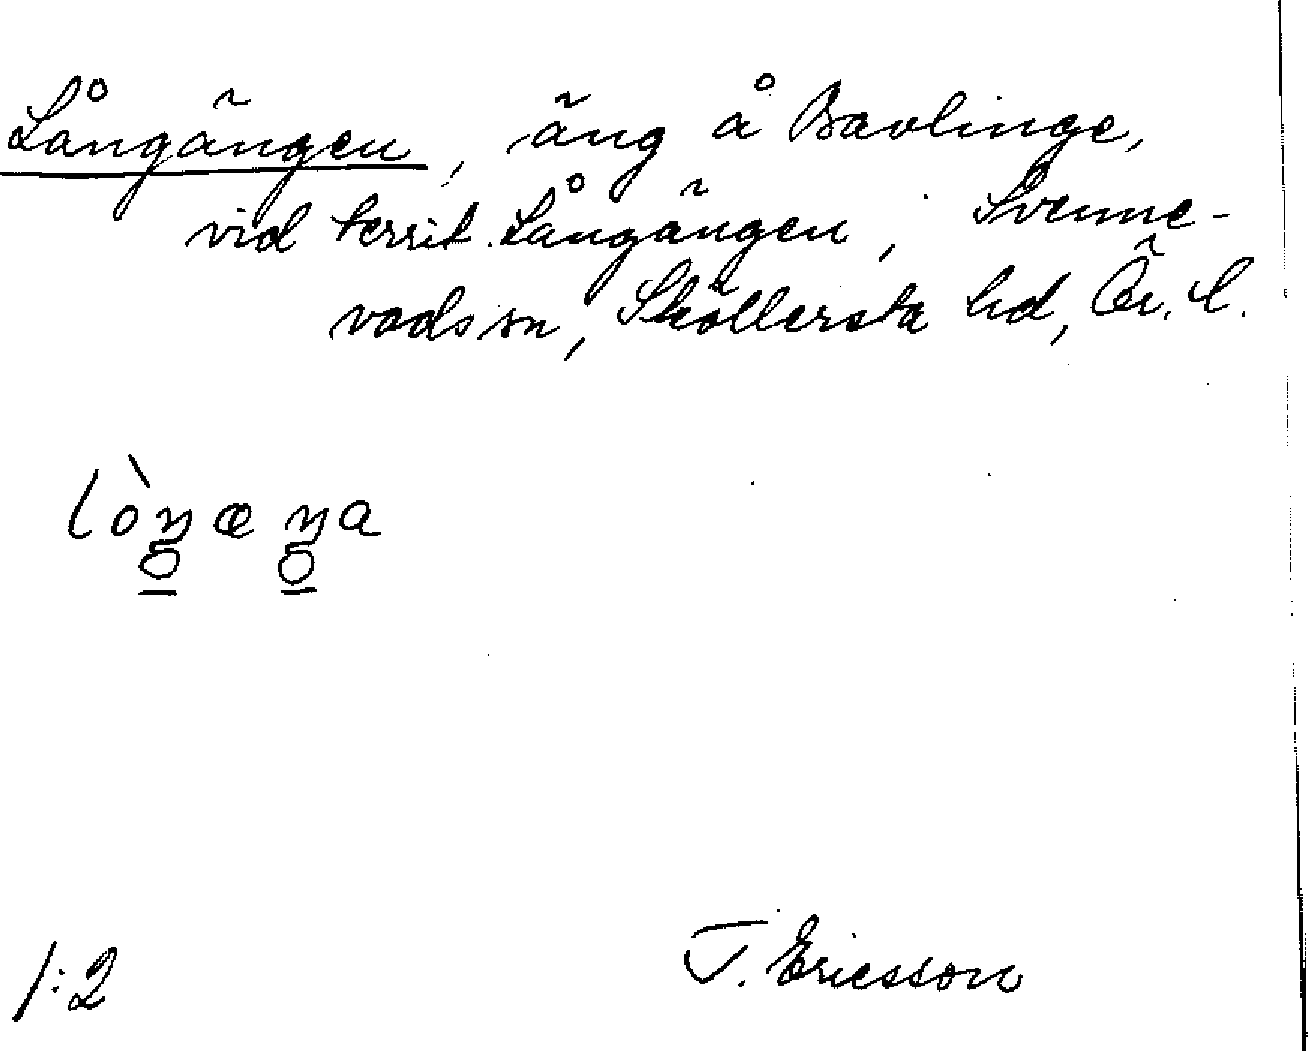 Långängen, äng å Bavlinge,
vid territ. Långängen, Svenne-
vads sn, Sköllersta hd, Ör. l.
1:2
T. Ericsson